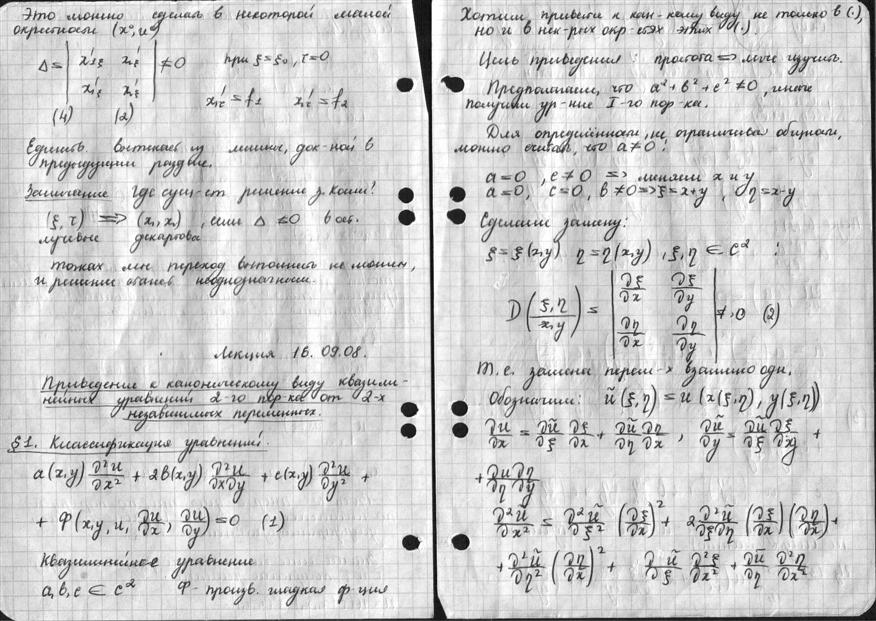 Это можно сделать в некоторой малой
окрестности (x°, u°)
Δ = | x₁'ξ x₁'τ ; x₂'ξ x₂'τ | ≠ 0 при ξ=ξ₀, τ=0
(4) (2) x₁'τ = f₁ x₂'τ = f₂
Единств. вытекает из
предыдущем разделе.
Замечание Где сущ-ет решение з. Коши?
(ξ, τ) ⟹ (x₁, x₂), если Δ ≠ 0 в ост.
лучевые декартова
точках мы переход выполнить не можем,
и решение станет неоднозначным.
Лекция 16. 09.08.
Приведение к каноническому виду квазили-
нейных уравнений 2-го пор-ка от 2-х
независимых переменных.
§1. Классификация уравнений.
a(x,y) ∂²u/∂x² + 2b(x,y) ∂²u/∂x∂y + c(x,y) ∂²u/∂y² +
+ Ф(x, y, u, ∂u/∂x, ∂u/∂y) = 0 (1)
Квазилинейное уравнение
a, b, c ∈ C² Ф - произв. гладкая ф-ция
Хотим привести к кан-кому виду не только в (·),
но и в нек-рых окр-стях этих (·).
Цель приведения: простота ⟹ легче изучить.
Предполагаем, что a² + b² + c² ≠ 0, иначе
получим ур-ние I-го пор-ка.
Для определённости, не ограничивая общности,
можно считать, что a ≠ 0:
a=0, c≠0 ⟹ меняем x и y
a=0, c=0, b≠0 ⟹ ξ=x+y, η=x-y
Сделаем замену:
ξ=ξ(x,y) η=η(x,y), ξ,η ∈ C² :
D(ξ,η / x,y) = | ∂ξ/∂x ∂ξ/∂y ; ∂η/∂x ∂η/∂y | ≠ 0 (2)
Т.е. замена перем-х взаимно одн.
Обозначим: ũ(ξ,η) = u(x(ξ,η), y(ξ,η))
∂u/∂x = ∂ũ/∂ξ ∂ξ/∂x + ∂ũ/∂η ∂η/∂x, ∂ũ/∂y = ∂ũ/∂ξ ∂ξ/∂y +
+ ∂u/∂η ∂η/∂y
∂²ũ/∂x² = ∂²ũ/∂ξ² (∂ξ/∂x)² + 2 ∂²ũ/∂ξ∂η (∂ξ/∂x)(∂η/∂x) +
+ ∂²ũ/∂η² (∂η/∂x)² + ∂ũ/∂ξ ∂²ξ/∂x² + ∂ũ/∂η ∂²η/∂x²